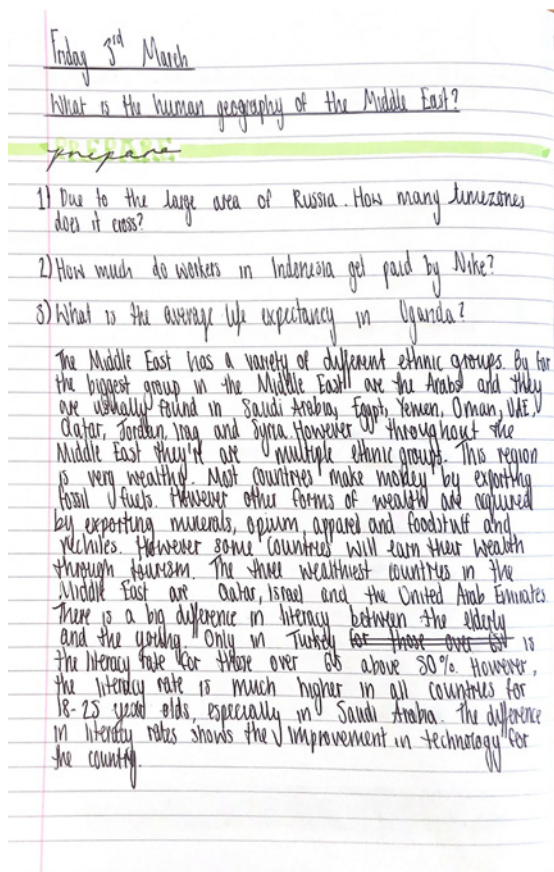 Friday 3rd March
What is the human geography of the Middle East?
prepare
1) Due to the large area of Russia. How many timezones
does it cross?
2) How much do workers in Indonesia get paid by Nike?
3) What is the average life expectancy in Uganda?
The Middle East has a variety of different ethnic groups. By far
the biggest group in the Middle East are the Arabs and they
are usually found in Saudi Arabia, Egypt, Yemen, Oman, UAE,
Qatar, Jordan, Iraq and Syria. However throughout the
Middle East they're are multiple ethnic groups. This region
is very wealthy. Most countries make money by exporting
fossil fuels. However other forms of wealth are acquired
by exporting minerals, opium, apparel and foodstuff and
However some countries will earn their wealth
through tourism. The three wealthiest countries in the
Middle East are Qatar, Israel and the United Arab Emirates.
There is a big difference in literacy between the elderly
and the young. Only in Turkey for those over is
the literacy rate for those over 65 above 80%. However,
the literacy rate is much higher in all countries for
18-25 olds, especially in Saudi Arabia. The difference
in literacy rates shows the improvement in technology for
the country.